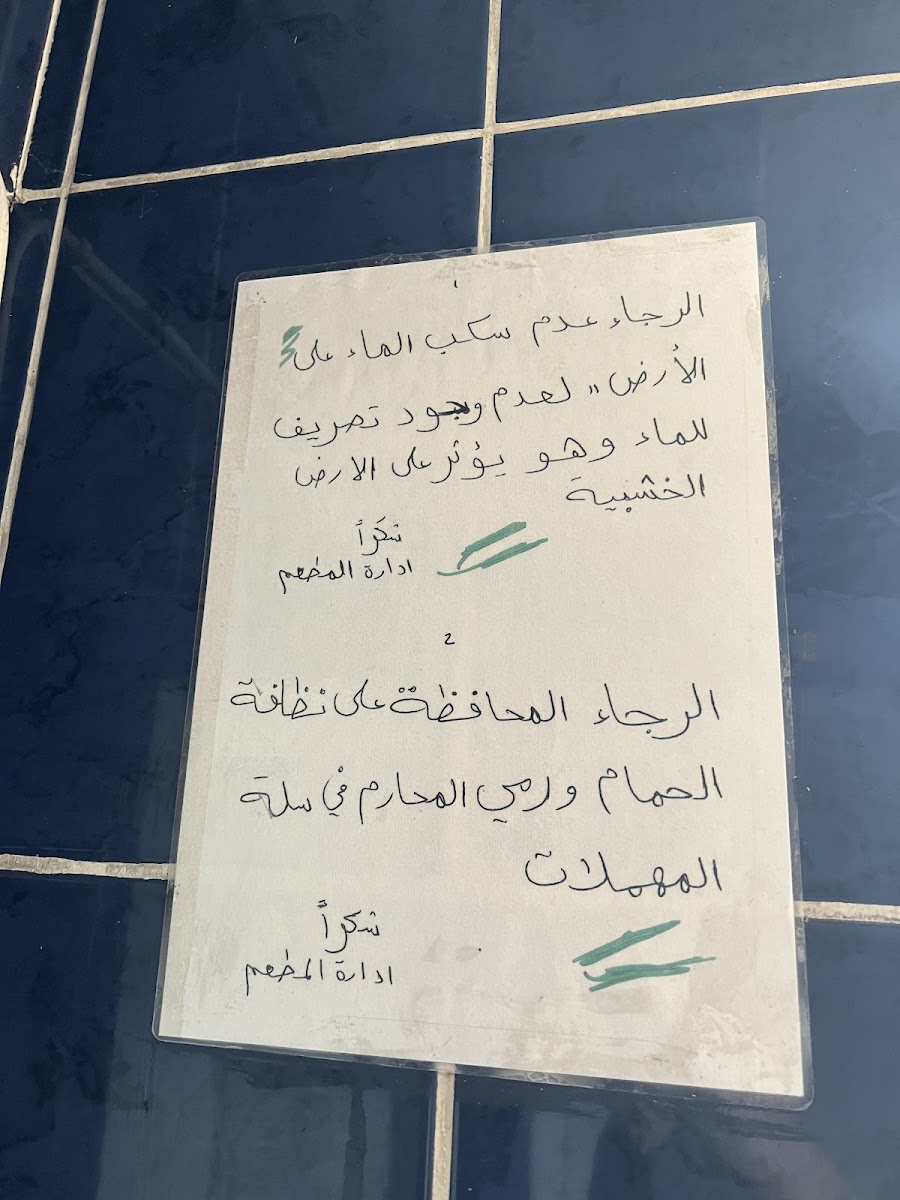 1
الرجاء عدم سكب الماء على
الأرض " لعدم وجود تصريف
للماء وهو يؤثر على الارض
الخشبية
شكراً
ادارة المطعم
2
الرجاء المحافظة على نظافة
الحمام ورمي المحارم في سلة
المهملات
شكراً
ادارة المطعم